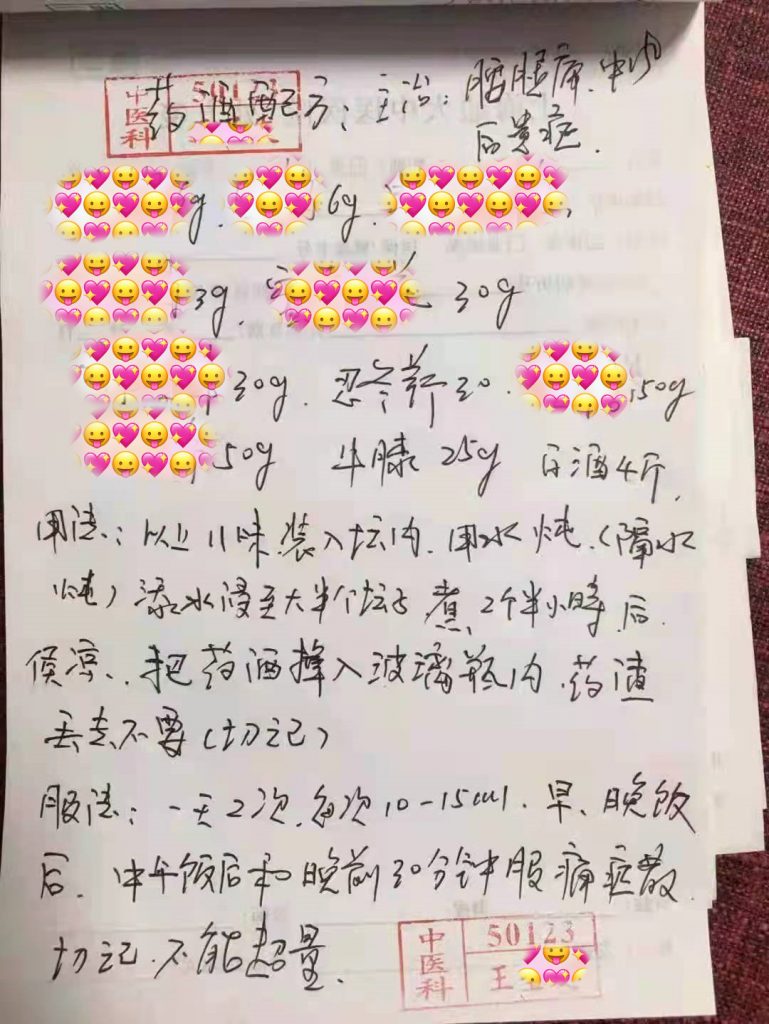 中医科 50123
药酒配方：主治：腰腿痛.中风
后贵症.
g. 6g.
3g. 30g
30g. 忍冬藤30. 50g
50g 牛膝 25g 白酒4斤.
用法：以上11味装入坛内.用水炖.(隔水
炖)添水浸至大半个坛子煮.2个半小时后.
候凉.把药酒 入玻璃瓶内.药渣
丢去不要(切记)
服法：一天2次.每次10-15ml.早、晚饭
后.中午饭后和晚前30分钟服痛症散.
切记.不能超量.
中医科 50123
王